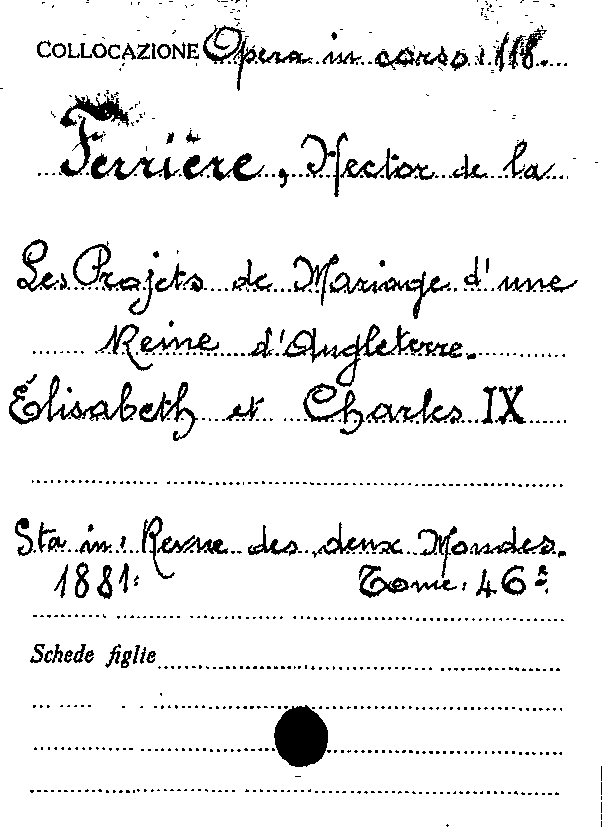 COLLOCAZIONE Opera in corso: 118.
Ferrière, Hector de la
Les Projets de Mariage d'une
Reine d'Angleterre.
Élisabeth et Charles IX
Sta in: Revue des deux Mondes.
1881: Tome: 46º.
Schede figlie